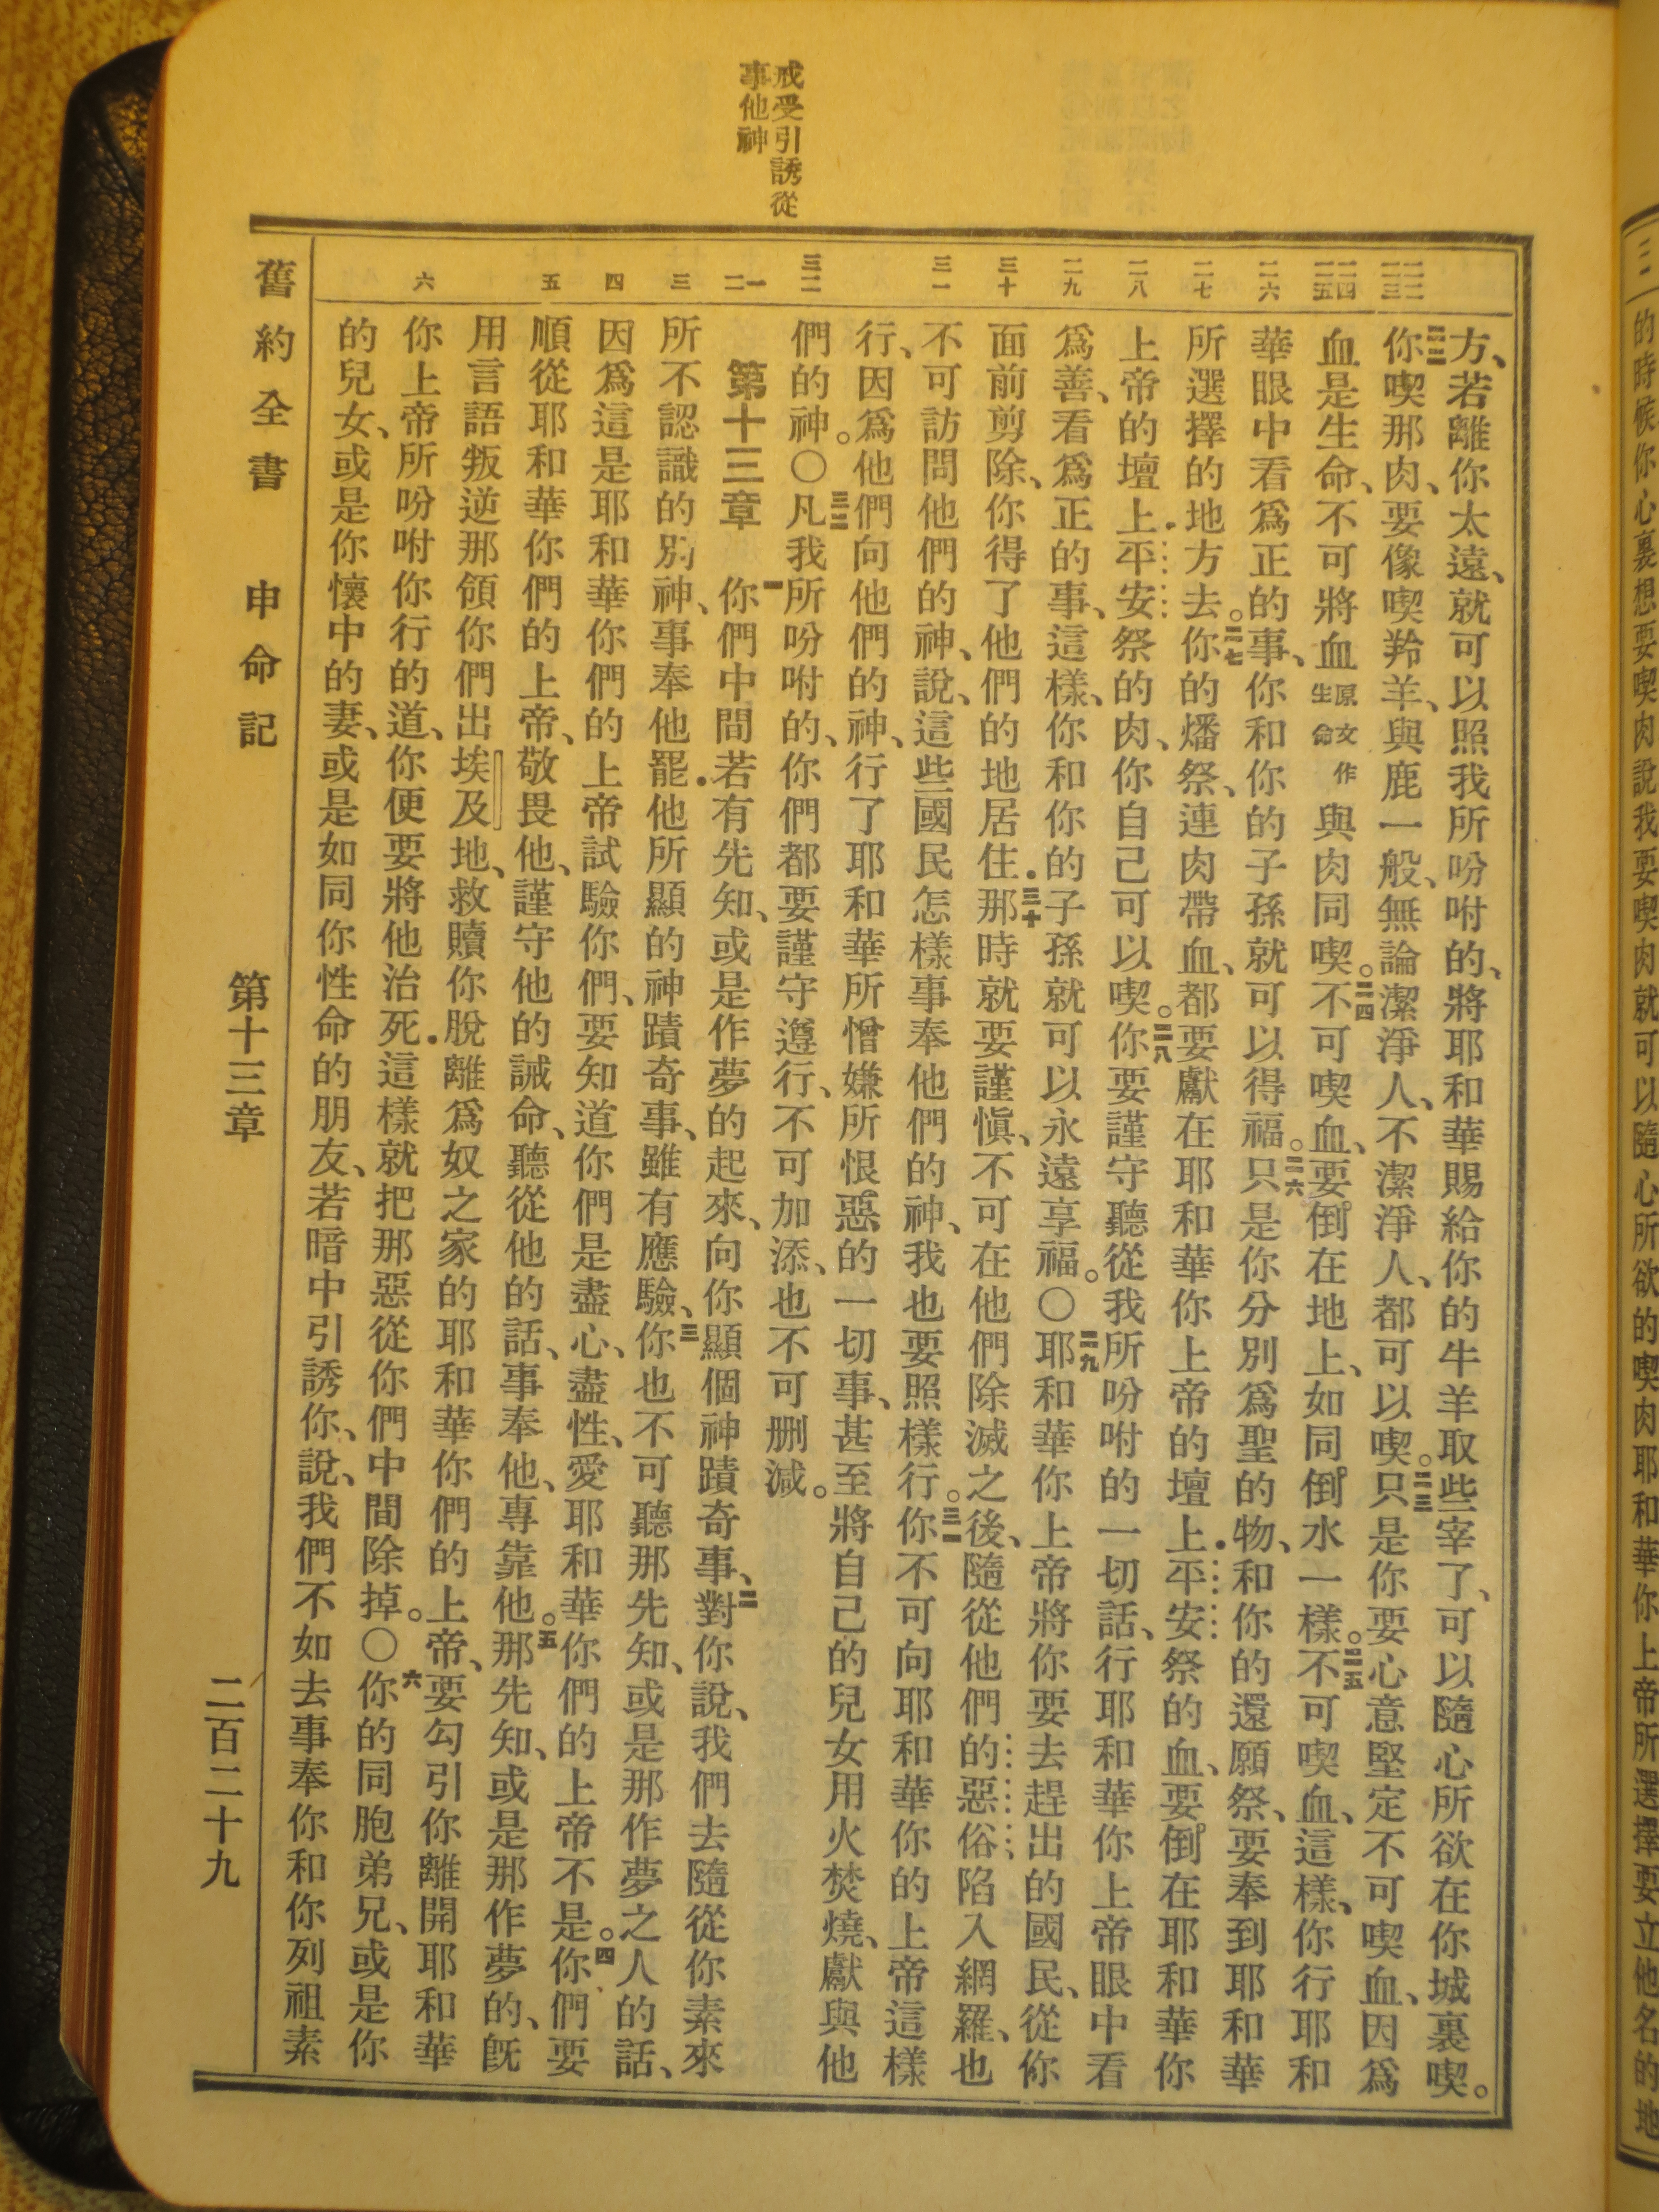 的時候你心裏想要喫肉說我要喫肉就可以隨心所欲的喫肉耶和華你上帝所選擇要立他名的地
戒受引誘從
事他神
二二
二三
二四
二五
二六
二七
二八
二九
三十
三一
三二
一
二
三
四
五
六
方、若離你太遠、就可以照我所吩咐的、將耶和華賜給你的牛羊取些宰了、可以隨心所欲在你城裏喫。
二二你喫那肉、要像喫羚羊、與鹿一般、無論潔淨人、不潔淨人、都可以喫。二三只是你要心意堅定不可喫血、因爲
血是生命、不可將血原文作生命與肉同喫。二四不可喫血、要倒在地上、如同倒水一樣。二五不可喫血、這樣、你行耶和
華眼中看爲正的事、你和你的子孫就可以得福。二六只是你分別爲聖的物、和你的還願祭、要奉到耶和華
所選擇的地方去。二七你的燔祭、連肉帶血、都要獻在耶和華你上帝的壇上.平安祭的血、要倒在耶和華你
上帝的壇上.平安祭的肉、你自己可以喫。二八你要謹守聽從我所吩咐的一切話、行耶和華你上帝眼中看
爲善、看爲正的事、這樣、你和你的子孫就可以永遠享福。〇二九耶和華你上帝將你要去趕出的國民、從你
面前剪除、你得了他們的地居住.三十那時就要謹愼、不可在他們除滅之後、隨從他們的惡俗陷入網羅、也
不可訪問他們的神、說、這些國民怎樣事奉他們的神、我也要照樣行。三一你不可向耶和華你的上帝這樣
行、因爲他們向他們的神、行了耶和華所憎嫌所恨惡的一切事、甚至將自己的兒女用火焚燒、獻與他
們的神。〇三二凡我所吩咐的、你們都要謹守遵行、不可加添、也不可刪減。
第十三章 一你們中間.若有先知、或是作夢的起來、向你顯個神蹟奇事、二對你說、我們去隨從你素來
所不認識的別神、事奉他罷.他所顯的神蹟奇事、雖有應驗、三你也不可聽那先知、或是那作夢之人的話、
因爲這是耶和華你們的上帝試驗你們、要知道你們是盡心、盡性、愛耶和華你們的上帝不是。四你們要
順從耶和華你們的上帝、敬畏他、謹守他的誡命、聽從他的話、事奉他、專靠他。五那先知、或是那作夢的、旣
用言語叛逆那領你們出埃及地、救贖你脫離爲奴之家的耶和華你們的上帝、要勾引你離開耶和華
你上帝所吩咐你行的道、你便要將他治死.這樣就把那惡從你們中間除掉。〇六你的同胞弟兄、或是你
的兒女、或是你懷中的妻、或是如同你性命的朋友、若暗中引誘你、說、我們不如去事奉你和你列祖素
舊約全書 申命記 第十三章 二百二十九